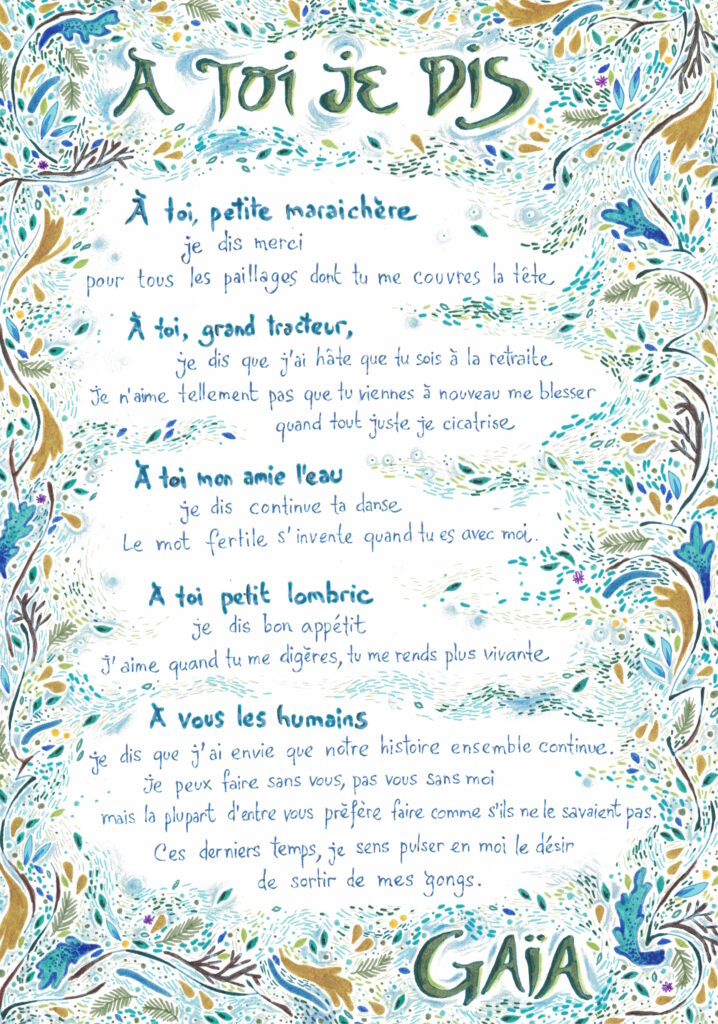 À TOI JE DIS
À toi, petite maraichère
je dis merci
pour tous les paillages dont tu me couvres la tête
À toi, grand tracteur,
je dis que j'ai hâte que tu sois à la retraite
Je n'aime tellement pas que tu viennes à nouveau me blesser
quand tout juste je cicatrise
À toi mon amie l'eau
je dis continue ta danse
Le mot fertile s'invente quand tu es avec moi.
À toi petit lombric
je dis bon appétit
J'aime quand tu me digères, tu me rends plus vivante
À vous les humains
je dis que j'ai envie que notre histoire ensemble continue.
Je peux faire sans vous, pas vous sans moi
mais la plupart d'entre vous préfère faire comme s'ils ne le savaient pas.
Ces derniers temps, je sens pulser en moi le désir
de sortir de mes gongs.
GAÏA